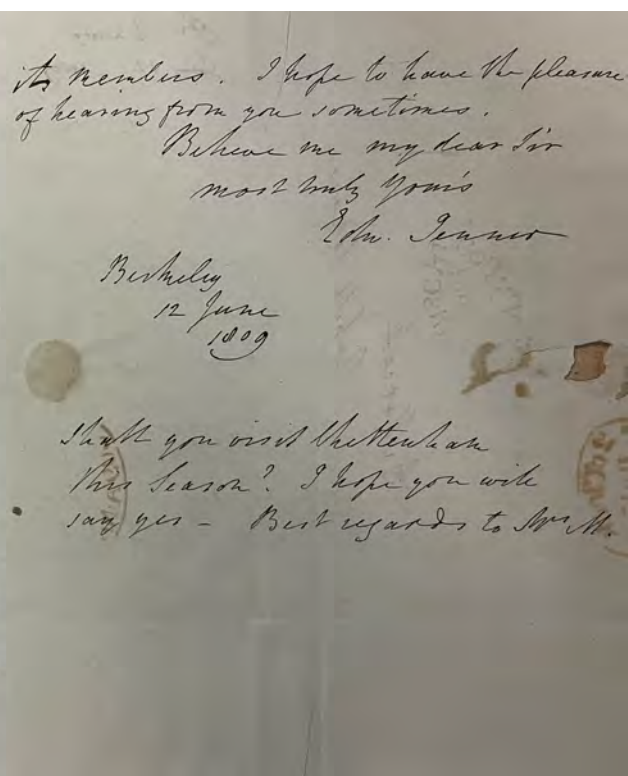 its members. I hope to have the pleasure
of hearing from you sometimes.
Believe me my dear Sir
most truly Yours
Edw. Jenner
Berkeley
12 June
1809
Shall you visit Cheltenham
this Season? I hope you will
say yes - Best regards to Mrs M.